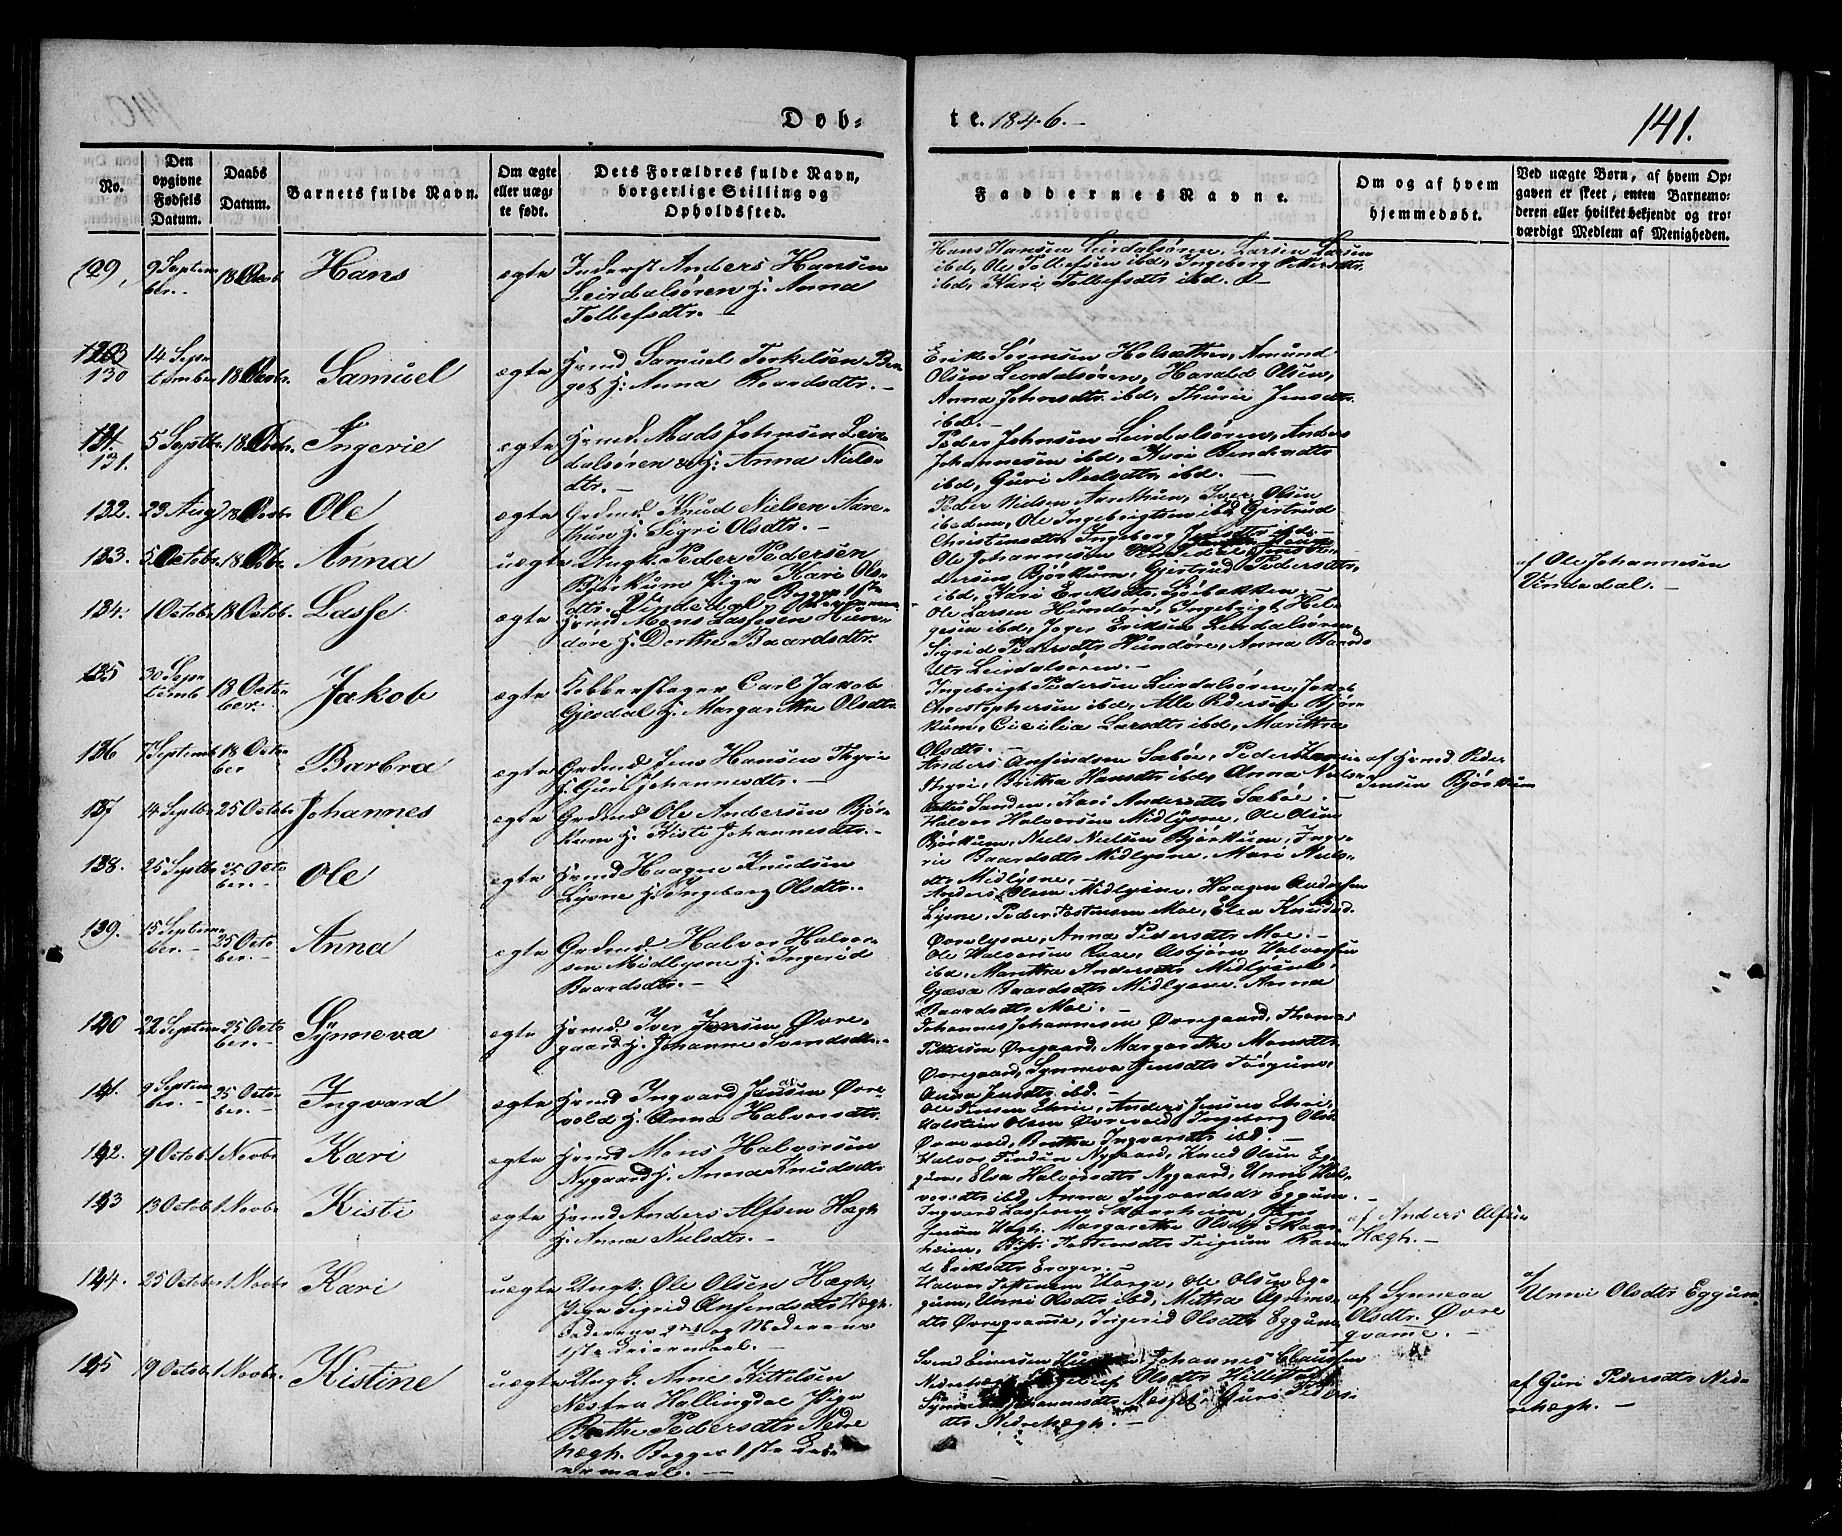 Døb-
te. 1846.-
141.
No.
Den opgivne Fødsels Datum.
Daabs Datum.
Barnets fulde Navn.
Om ægte eller uægte født.
Dets Forældres fulde Navn, borgerlige Stilling og Opholdssted.
Faddernes Navne.
Om og af hvem hjemmedøbt.
Ved uægte Børn, af hvem Opgaven er skeet, enten Barnemoderen eller hvilket bekjendt og troværdigt Medlem af Menigheden.
129, 9 Septem 18 Octob Hans ægte Inderst Anders Hansen
ber.- Leirdalsøren H. Anna
Tolbefsdtr.-
Hans Hansen Leirdalsøren, Larsen Larsen
ibd, Ole Tollefsen ibd, Ingeborg Pettersdtr.
ibd, Kari Tolbefsdtr ibd.
130 14 Sep- 18 Octobr. Samuel ægte Hsmd. Samuel Torkelsen Ben-
tember get H. Anna Baardsdtr.-
Erik Sørensen Holsæther, Amund
Olsen Leirdalsøren, Harald Olsen,
Anna Johnsdtr ibd, Thurie Jensdtr.
ibd.-
131. 5 Septbr. 18 Octobr. Ingerie ægte Hsmd. Mads Johnsen Leir-
dalsøren & H. Anna Niels-
dtr.-
Peder Johnsen Leirdalsøren, Anders
Johannesen ibd, Kari Bendixdtr
ibd, Guri Nielsdtr ibd.-
132. 23 Aug 18 Octobr Ole ægte Grdmd. Knud Nielsen Aare-
thun H. Sigri Olsdtr.-
Peder Nielsen Aarethun, Iver Olsen
ibedem, Ole Ingebrigtsen ibd, Gjertrud
Christensdtr, Ingeborg Jensdtr ibd.
133. 5 Octobr. 18 Octbr. Anna uægte Ungk. Peder Pedersen
Bjørkum Pige Kari Ols-
dtr. Vindedal, Begge 1ste
Ole Johannesen Vindedal
dersen Bjørkum, Gjertrud Pedersdtr,
ibd, Kari Eriksdtr Løibakken.-
af Ole Johannesen
Vindedal.-
134. 1 Octobr 18 Octob. Lasse ægte Hsmd Mons Lassesen Hun-
døre H. Dorthe Baardsdtr.
Ole Larsen Hundøre, Ingebrigt Hel-
gesen ibd, Joger Eriksen Leirdalsøren,
Sigrid Pedersdtr Hundøre, Anna Baards
dtr Leirdalsøren.-
135 30 Sep- 18 Octo- Jakob ægte Kobberslager Carl Jakob
temb ber. Gjesdal H. Margarethe Olsdtr
Ingebrigt Pedersen Leirdalsøren, Jakob
Christophersen ibd, Atle Pedersen Bjør-
kum, Cicilia Larsdtr ibd, Marithra
Olsdtr.-
136 7 Septemb 18 Octo- Barbra ægte Grdmd. Jens Hansen Thyri
ber H. Guri Johannesdtr.-
Anders Ansindsen Sæbøe, Peder Hansen
Thyri, Brithe Hansdtr ibd, Anna Niels-
datter Sanden, Kari Andersdtr Sæbøe.-
af Hsmd. Peder
Jensen Bjørkum
137 14 Septbr 25 Octobr Johannes ægte Grdmd Ole Andersen Bjør-
kum H. Kisti Johannesdtr.-
Halvor Halvorsen Midlysne, Ole Olsen
Bjørkum, Niels Nielsen Bjørkum, Inge-
rie Baardsdtr Midlysne, Mari Niels-
dtr Midlysne.-
138. 25 Septbr 25 Octo- Ole ægte Hsmd Haagen Knudsen
ber.- Lysne H. Ingeborg Olsdtr.
Anders Olsen Midlysne, Haagen Andersen
Lysne, Peder Tostensen Moe, Elsa Knudsd.
Øvrelysne, Anna Pedersdtr Moe.-
139. 15 Septem- 25 Octo- Anna ægte Grdmd. Halvor Halvor-
ber.- ber.- sen Midlysne H. Ingerid
Baardsdtr.-
Ole Halvorsen Raae, Asbjørn Halvorsen
ibd, Maritha Andersdtr Midlysne,
Gjæva Baardsdtr Midlysne, Anna
Baardsdtr Moe.
140 22 Septem 25 Octo Synneva ægte Hsmd. Iver Jensen Øvre-
ber.- gaard H. Johanne Svendsdtr.
Johannes Johannesen Øvregaard, Thomas
Pettersen Øvregaard, Margarethe Monsdtr
Øvregaard, Synneva Jensdtr
Anna Jensdtr ibd.-
141. 9 Septem 25 Octo- Ingvard ægte Hsmd Ingvard Jensen Øvre-
ber.- ber.- vold H. Anna Halvorsdtr.
Ole Jensen Ehrie, Anders Jensen Ehrie,
Halstein Olsen Ørevold, Ingeborg Olsd
Ørevold, Brithe Ingvarsdtr ibd.-
142. 9 Octob. 1 Novbr Kari ægte Hsmd Mons Halvorsen
Nygaard H. Anna Knudsdtr
Halvor Nygaard, Knud Olsen Eg-
gum, Elsa Halvorsdtr Nygaard, Unni Hal-
vorsdtr ibd, Anna Ingvardsdr Eggum.
143 13 Octob 1 Novbr Kisti ægte Hsmd Anders Alfsen Hægh
H. Anna Nielsdtr.-
Ingvard Lassesen Skanheim, Hans
Jensen Hægh, Margarethe Olsdtr Skan-
heim, Kisti Tostensdtr
d Eriksdtr
af Anders Alfsen
Hægh.-
144. 25 Octobr 1 Novbr Kari uægte Ungk. Ole Olsen Hægh,
Pige Sigrid Ansendsdtr Hægh.
Faderens 2det og Moderens
1ste Leiermaal.-
Halvor Hægh, Ole Olsen Eg-
gum, Unni Olsdtr ibd, Metha
dtr Øvreqvame, Ingerid Olsdtr Eggum,
af Synneva
Olsdtr. Øvre
qvame.-
af
Unni Olsdtr Eggum.
145 19 Octob. 1 Novbr. Kistine uægte Ungk. Arne Kittelsen
Næs fra Hallingdal Pige
Brithe Pedersdtr Nedre
hægh. Begges 1ste Lei-
ermaal.-
Svend Einersen Johannes Claussen
Nedrehægh Olsdtr
Synneva Johannesdtr Næsset, Guri Peders-
dtr Nedrehægh.-
af Guri Pedersdtr Ned-
rehægh.-